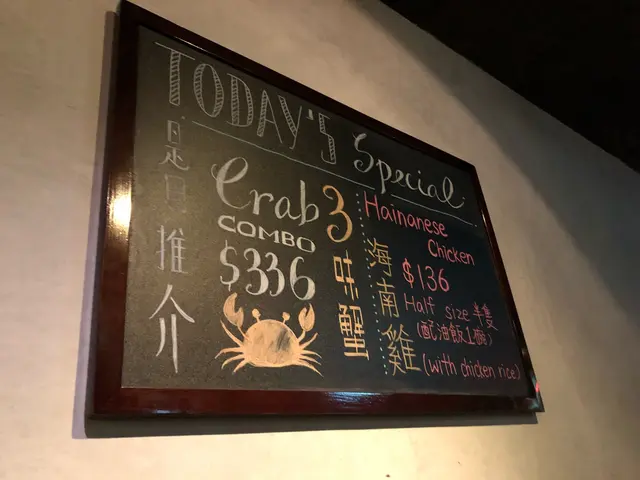 TODAY'S Special
是日推介
Crab
COMBO
$336
3味蟹
Hainanese
Chicken
海南雞
$136
Half size 半隻
(配油飯1碗)
(with chicken rice)